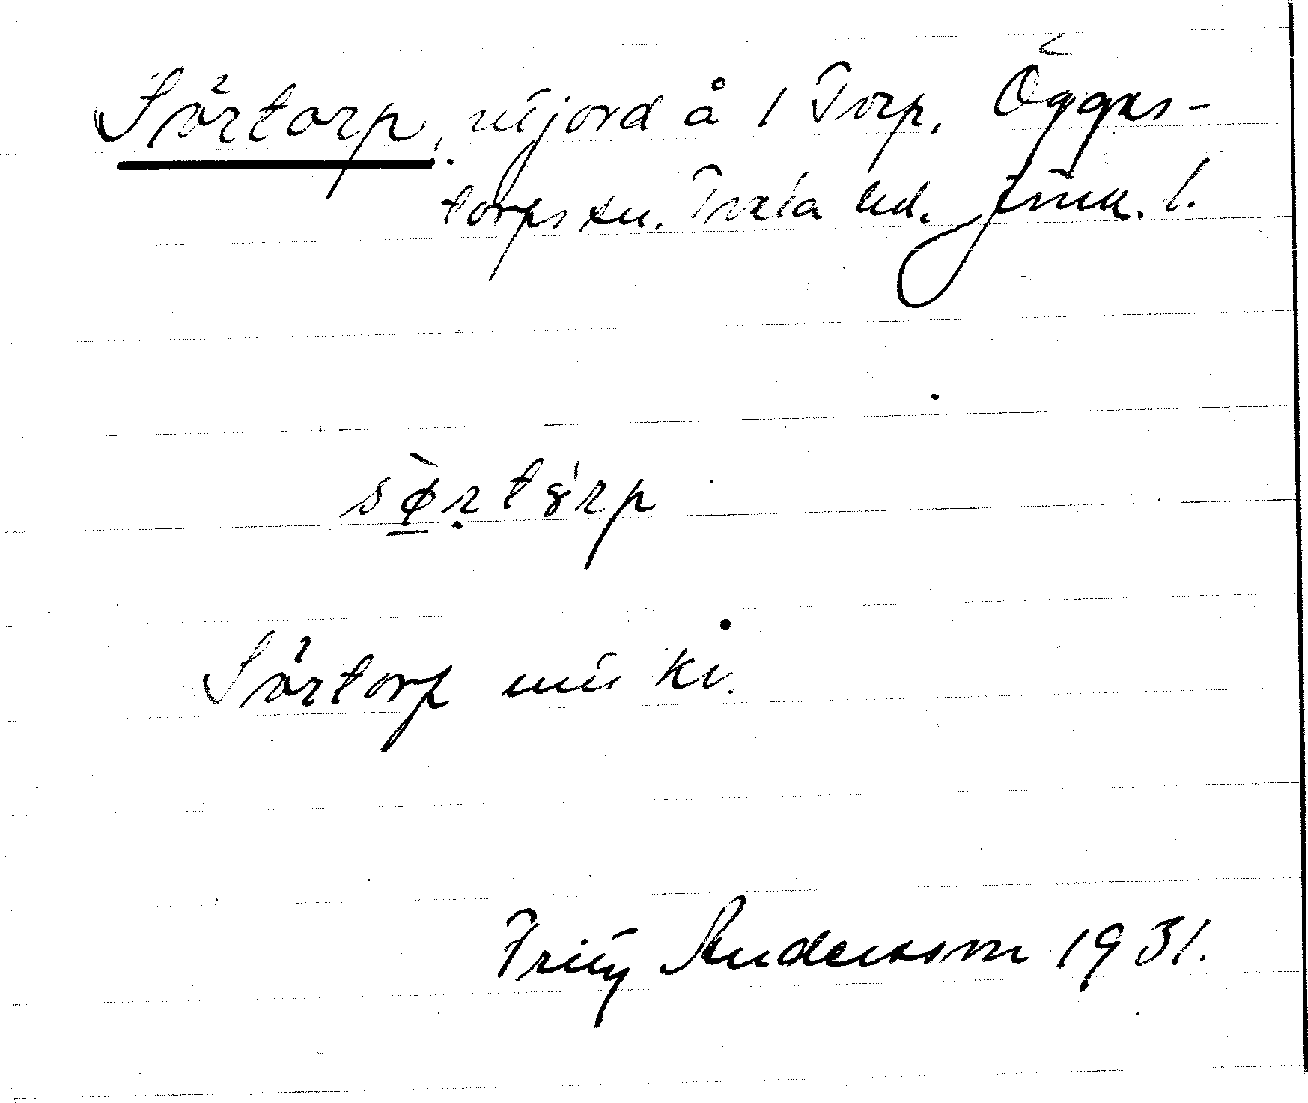 Sörtorp, utjord å 1 Torp, Öggns-
torps sn. Tveta hd. Jönk. l.
sø̀rtȣ́rp
Sörtorp
Fritz Andersson 1931.